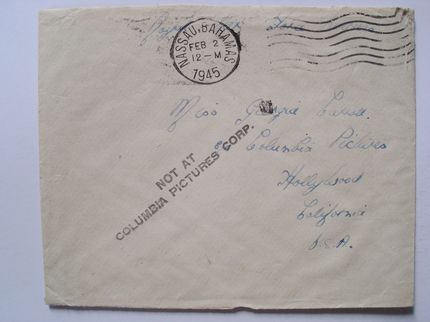 NASSAU, BAHAMAS
FEB 2
12-M
1945
Miss Georgia Carroll.
Columbia Pictures
Hollywood
California
U.S.A.
NOT AT
COLUMBIA PICTURES CORP.